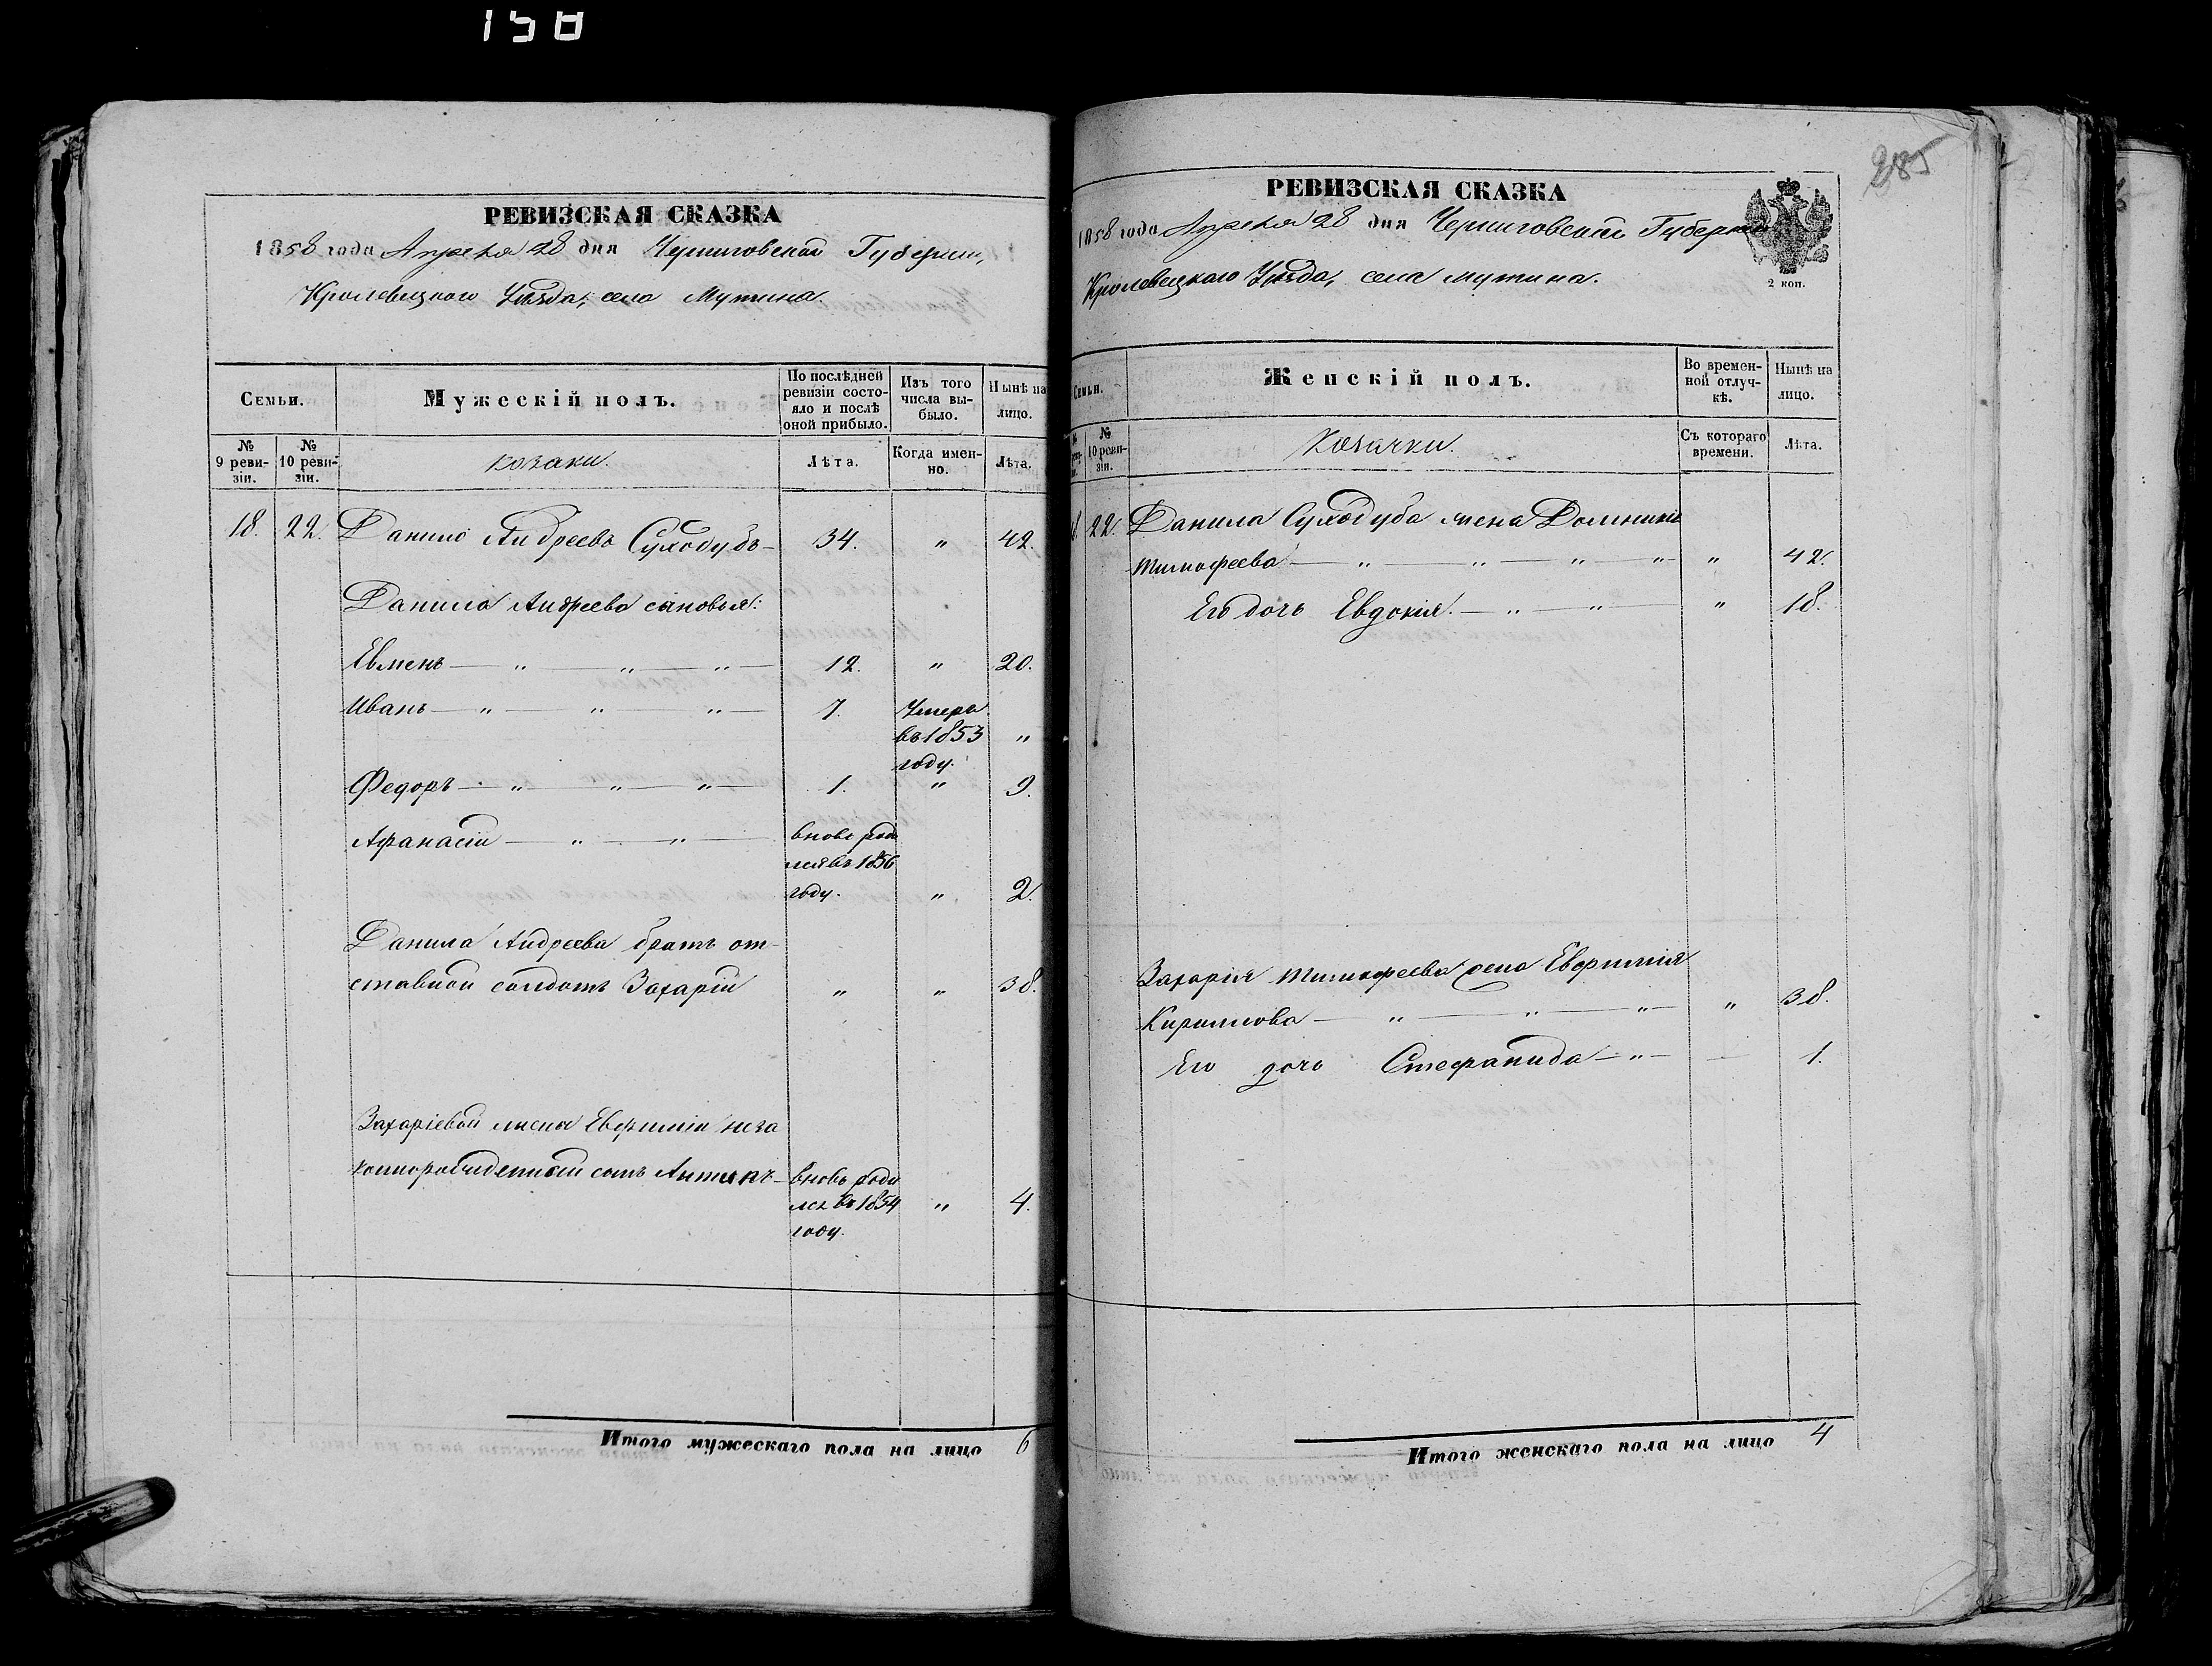 158
РЕВИЗСКАЯ СКАЗКА
1858 года Апреля 28 дня Черниговской Губернии,
Кролевецкого Уѣзда, села Мутина.
Семьи.
Мужескій полъ.
По послѣдней
ревизіи состо-
яло и послѣ
оной прибыло.
Изъ того
числа вы-
было.
Нынѣ на
лицо.
№
9 реви-
зіи.
№
10 реви-
зіи.
козаки.
Лѣта.
Когда имен-
но.
Лѣта.
18. 22. Данило Андреевъ Суходубъ — 34. " 42.
Данила Андреева сыновья:
Евменъ — " — " — " — 12. " 20.
Иванъ — " — " — " — 7. Умеръ
въ 1853 "
году.
Федоръ — " — " — " — 1. " 9.
Афанасій — " — " — вновь роди
лся въ 1856
году. " 2.
Данила Андреева братъ от-
ставной солдатъ Захарій " " 38.
Захаріевой жены Евфиміи неза
коннорожденный сынъ Антипъ — вновь роди
лся въ 1854 " 4.
году.
Итого мужескаго пола на лицо 6
285
РЕВИЗСКАЯ СКАЗКА
1858 года Апреля 28 дня Черниговской Губернии
Кролевецкаго Уѣзда, села Мутина.
2 коп.
Семьи.
Женскій полъ.
Во времен-
ной отлуч-
кѣ.
Нынѣ на
лицо.
№
10 реви-
зіи.
Козачки.
Съ котораго
времени.
Лѣта.
22. Данила Суходуба жена Домникія
Тимофеева — " — " — " — " — " 42.
Его дочь Евдокія. — " — " — " 18.
Захарія Тимофеева жена Евфимія
Кирилова — " — " — " — " 38.
Его дочь Стефанида — " — — 1.
Итого женскаго пола на лицо 4